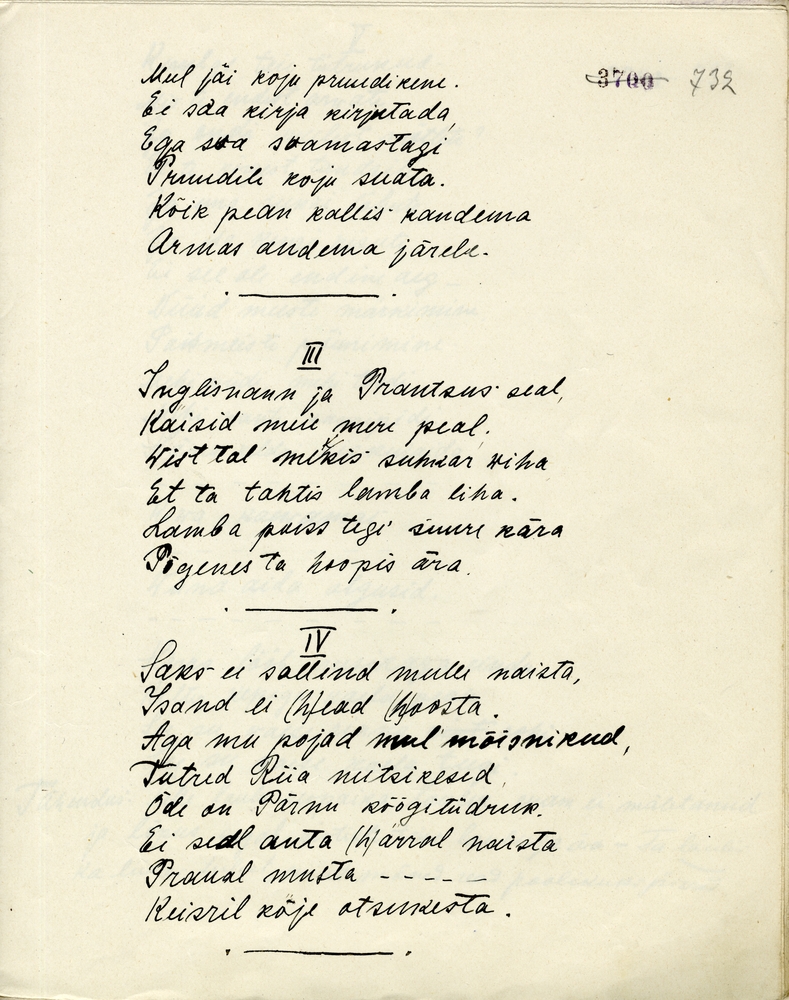 3700 732
Mul jäi koju pruudikene.
Ei sàa kirja kirjutada,
Ega saa saamastagi
Pruudile koju suata.
Kõik pean kallis kandema
Armas andema järele.
III
Inglismann ja Prantsus seal,
Kaisid meie mere peal.
Wist tal miskis suhkar wiha
Et ta tahtis lamba liha.
Lamba poiss tegi suure kära
Põgenes ta hoopis ära.
IV
Saks ei sallind mulle naista,
Isand ei (h)ead (h)oosta.
Aga mu pojad mul mõisnikud,
Tutred Riia neitsikesed,
Õde on Pärnu köögitüdruk.
Ei seal anta (h)ärral naista
Praual musta - - - - -
Keisril kõje otsukesta.